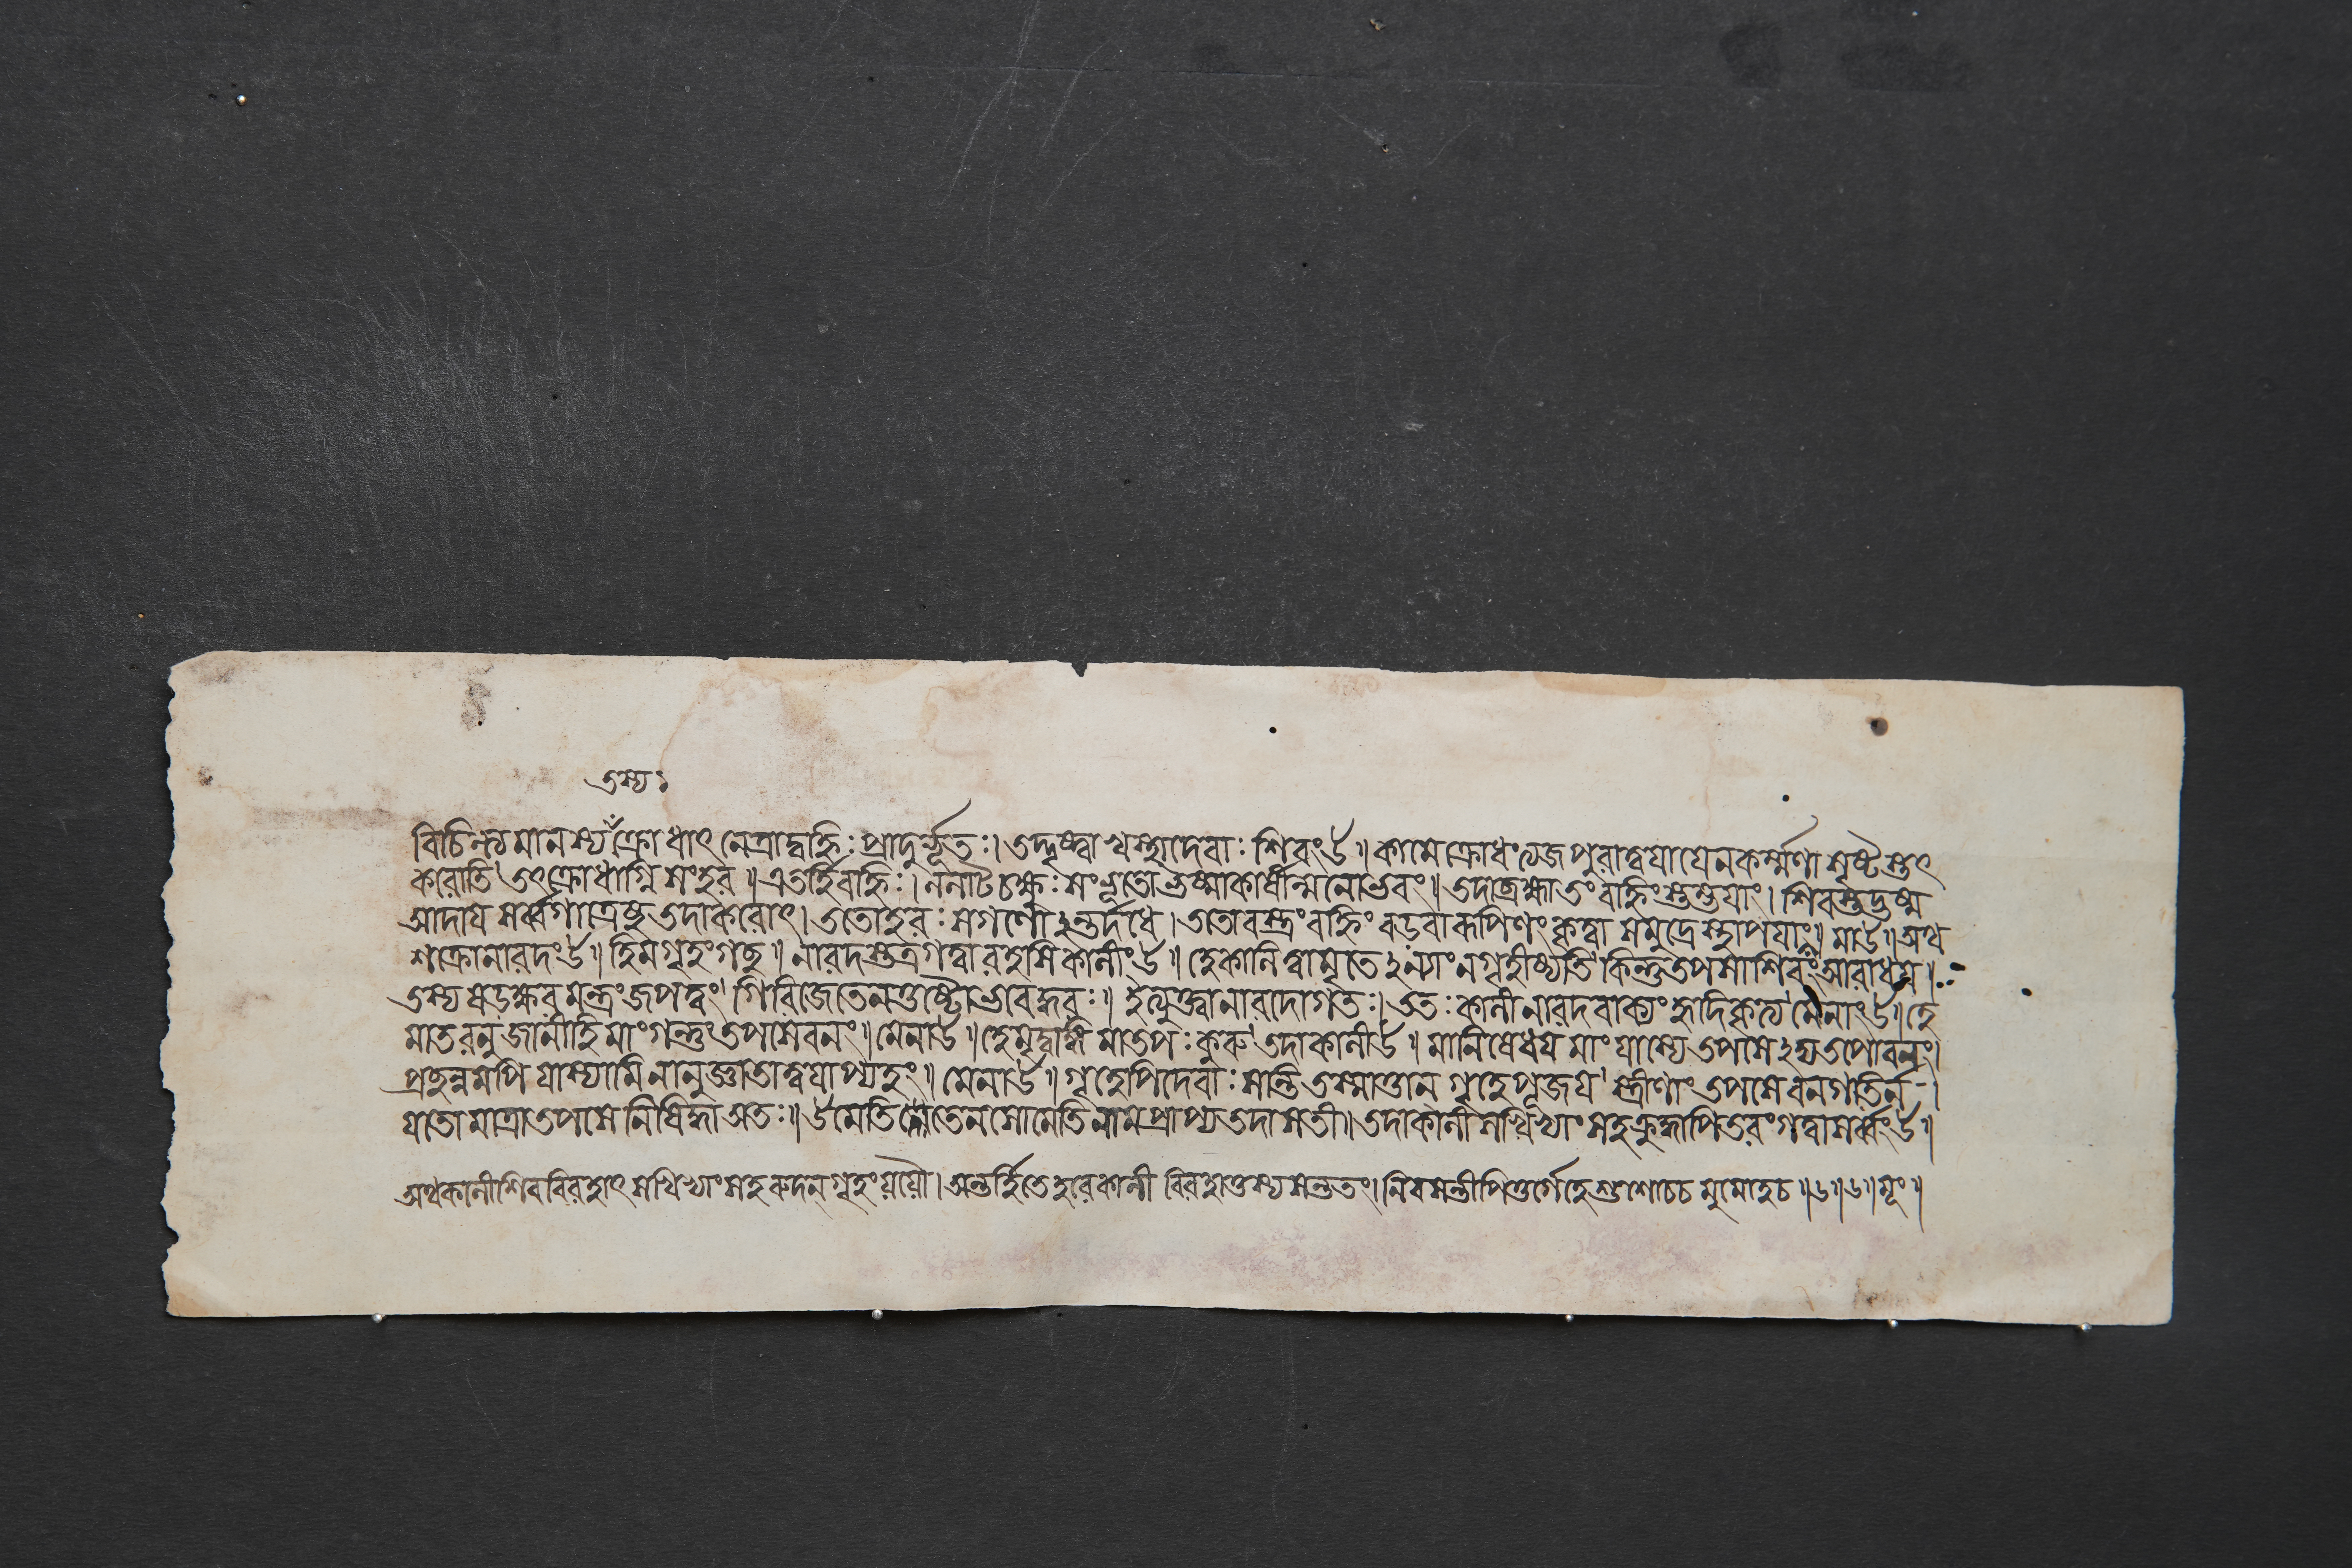 তস্য ঃ
বিচিন্ত্যমানস্য ক্রোধাৎ নেত্রাদ্বহ্নিঃ প্রাদুর্ভূতঃ। তদ্দৃষ্ট্বা খস্থাদেবাঃ শিবংঊ॥ কামে ক্রোধং ত্যজ পুরাত্বযা যেনকর্ম্মণা সৃষ্টৈস্তৎ
করোতি তৎক্রোধাগ্নি সংহর॥ এতর্হি বহ্নিঃ। ললাট চক্ষুঃ সংভূতো ভষ্মাকার্ষীন্মনোভবং॥ তদাব্রহ্মা তং বহ্নিং স্তম্ভযাং। শিবস্তদ্ভষ্ম
আদায সর্ব্বগাত্রেষু তদাকরোৎ। ততোহরঃ সগণো ঽন্তর্দধে। ততো বহ্নিং বডবারূপিণং কৃত্বা সমুদ্রে স্থাপযাং॥ মাঊ॥ অথ
শক্রোনারদংঊ॥ হিমগৃহং গচ্ছ॥ নারদস্তত্রগত্বা রহসি কালীংঊ॥ হেকালি ত্বামৃতে ঽন্যাং নগৃহীষ্যতি কিন্তু তপসা শিবং আরাধয॥
তস্য ষডক্ষর মন্ত্রং জপত্বং গিরিজে তেন তুষ্টো ভবেদ্ধরঃ॥ ইত্যুক্ত্বা নারদোগতঃ। ততঃ কালী নারদবাক্যং হৃদিকৃত্য মেনাংঊ॥ হে
মাতরনুজানীহি মাং গন্তুং তপসেবনং॥ মেনাঊ॥ হেমৃদ্বাঙ্গি মাতপঃ কুরু তদা কালীঊ॥ মানিষেধয মাং যাস্যে তপসে ঽদ্য তপোবনং।
প্রচ্ছন্নমপি যাস্যামি নানুজ্ঞাতাত্বযাপ্যহং॥ মেনাঊ॥ গৃহেপি দেবাঃ সন্তি তস্মাত্তান গৃহে পূজয স্ত্রীণাং তপসে বনগতির্ন।
যতো মাত্রা তপসে নিষিদ্ধা অতঃ॥ ঊমেতি তেন সোমেতি নাম প্রাপ্য তদাসতী॥ তদাকালী সখিভ্যাং সহ পিতরং গত্বা সর্ব্বংঊ॥
অথ কালী শিববিরহাৎ সখিভ্যাং সহ রুদন গৃহং যযৌ। অন্তর্হিতে হরেকালী বিরহাত্তস্য সন্ততং। নিবসন্তী পিতুর্গেহে শুশোচচ মুমোহচ॥৬॥৬॥ মূং॥